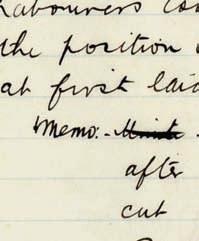 labourers con
the position
at first laid
Memo:-
after
cut